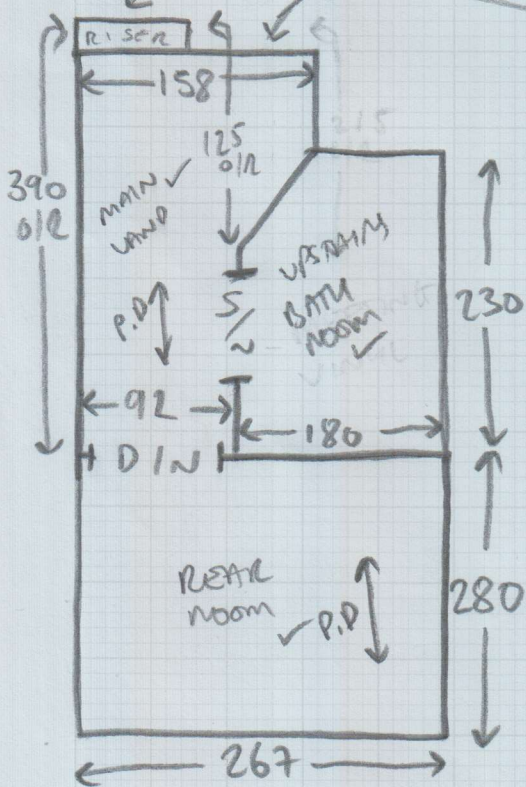 RISER
158
125
O/R
390
O/R
MAIN ✓
LAND
P.D
UPSTAIRS
BATH
ROOM ✓
S/N
230
92
180
D/N
REAR
ROOM ✓
P.D
280
267